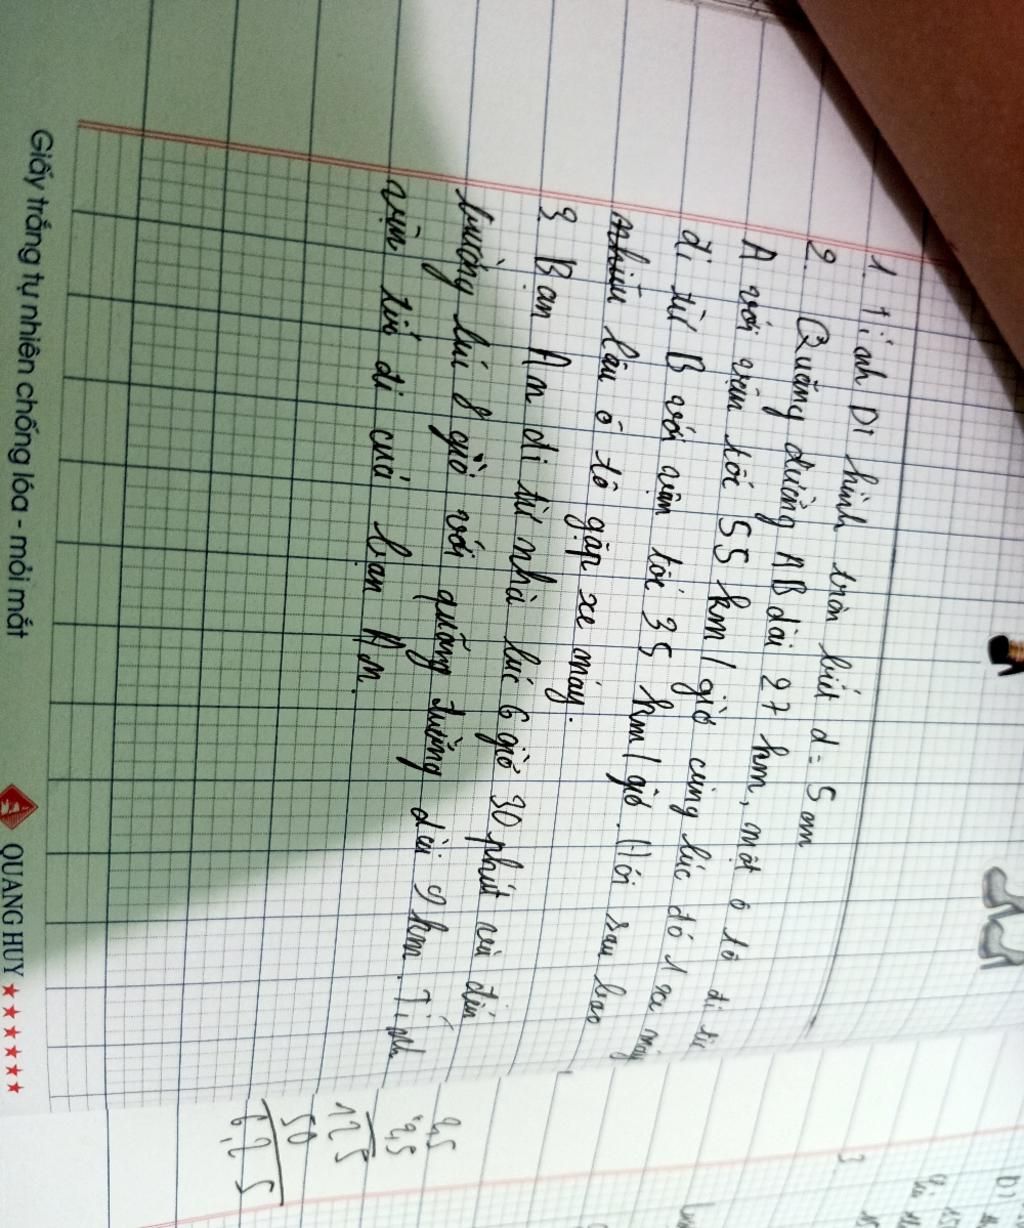 1. Tính DT hình tròn biết d = 5 cm
2. Quãng đường AB dài 27 km, một ô tô đi từ
A với vận tốc 55 km/giờ cùng lúc đó 1 xe máy
đi từ B với vận tốc 35 km/giờ. Hỏi sau bao
nhiêu lâu ô tô gặp xe máy.
3 Bạn An đi từ nhà lúc 6 giờ 30 phút và đến
trường lúc 8 giờ với quãng đường dài 9 km. Tính
vận tốc đi của bạn An.
2,5
×2,5
125
50
6,25
3
DT
Giấy trắng tự nhiên chống lóa - mỏi mắt
QUANG HUY ★★★★★★